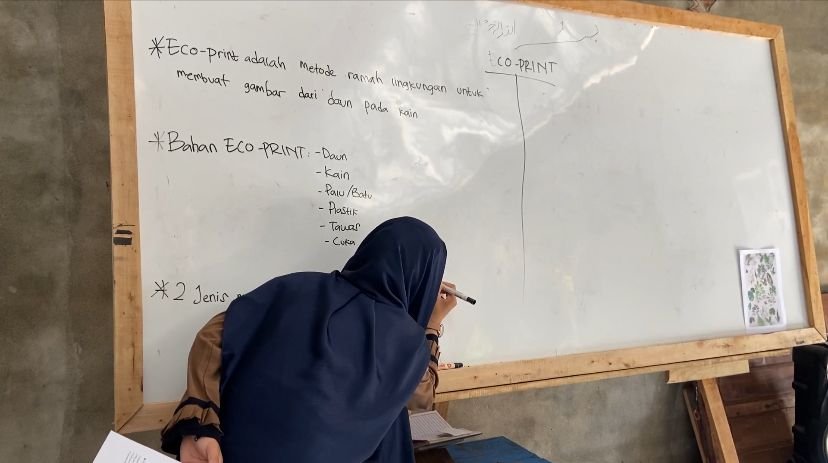 ECO-PRINT
*Eco-print adalah metode ramah lingkungan untuk
membuat gambar dari daun pada kain
*Bahan ECO-PRINT: -Daun
-Kain
-Palu/Batu
-Plastik
-Tawas
-Cuka
*2 Jenis